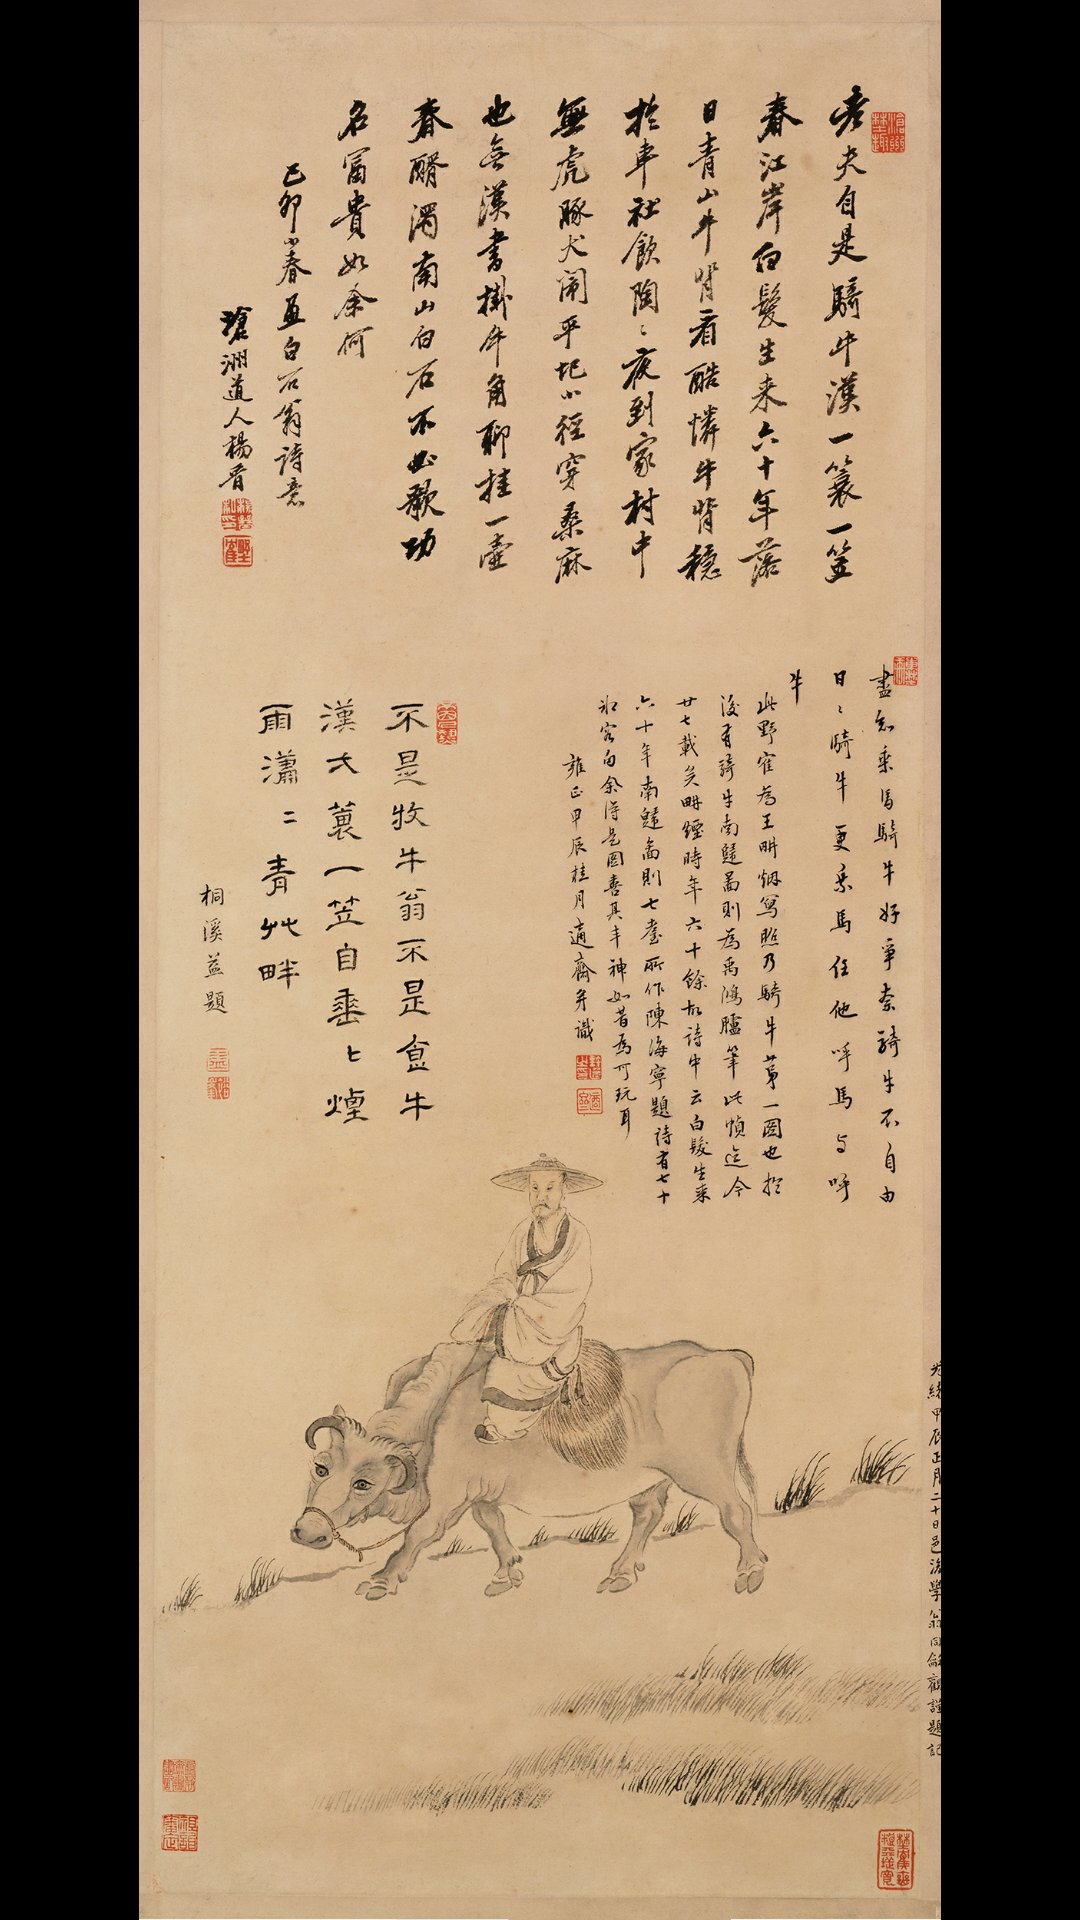 老夫自是騎牛漢一簑一笠
春江岸白髮生来六十年落
日青山牛背看酷憐牛背穩
於車社飲陶〻夜到家村中
無虎豚犬鬧平圯小徑穿桑麻
也無漢書掛牛角聊挂一壺
春醑濁南山白石不必歌功
名富貴如余何
己卯小春画白石翁詩意
滄洲道人楊晋
盡知乘馬騎牛好爭奈騎牛不自由
日〻騎牛更乘馬任他呼馬與呼
牛
此野寉為王畊烟寫照乃騎牛苐一圖也於
後有騎牛南歸啚則為禹鴻臚筆此幀迄今
廿七載矣畊煙時年六十餘故詩中云白髮生来
六十年南歸啚則七耋所作陳海寧題詩有七十
客句余得是圖喜其丰神如昔為可玩耳
雍正甲辰桂月適齋并識
不是牧牛翁不是飯牛
漢大蓑一笠自垂〻煙
雨瀟〻青艸畔
桐溪益題
光緒甲辰正月二十日邑後學翁同龢觀謹題記